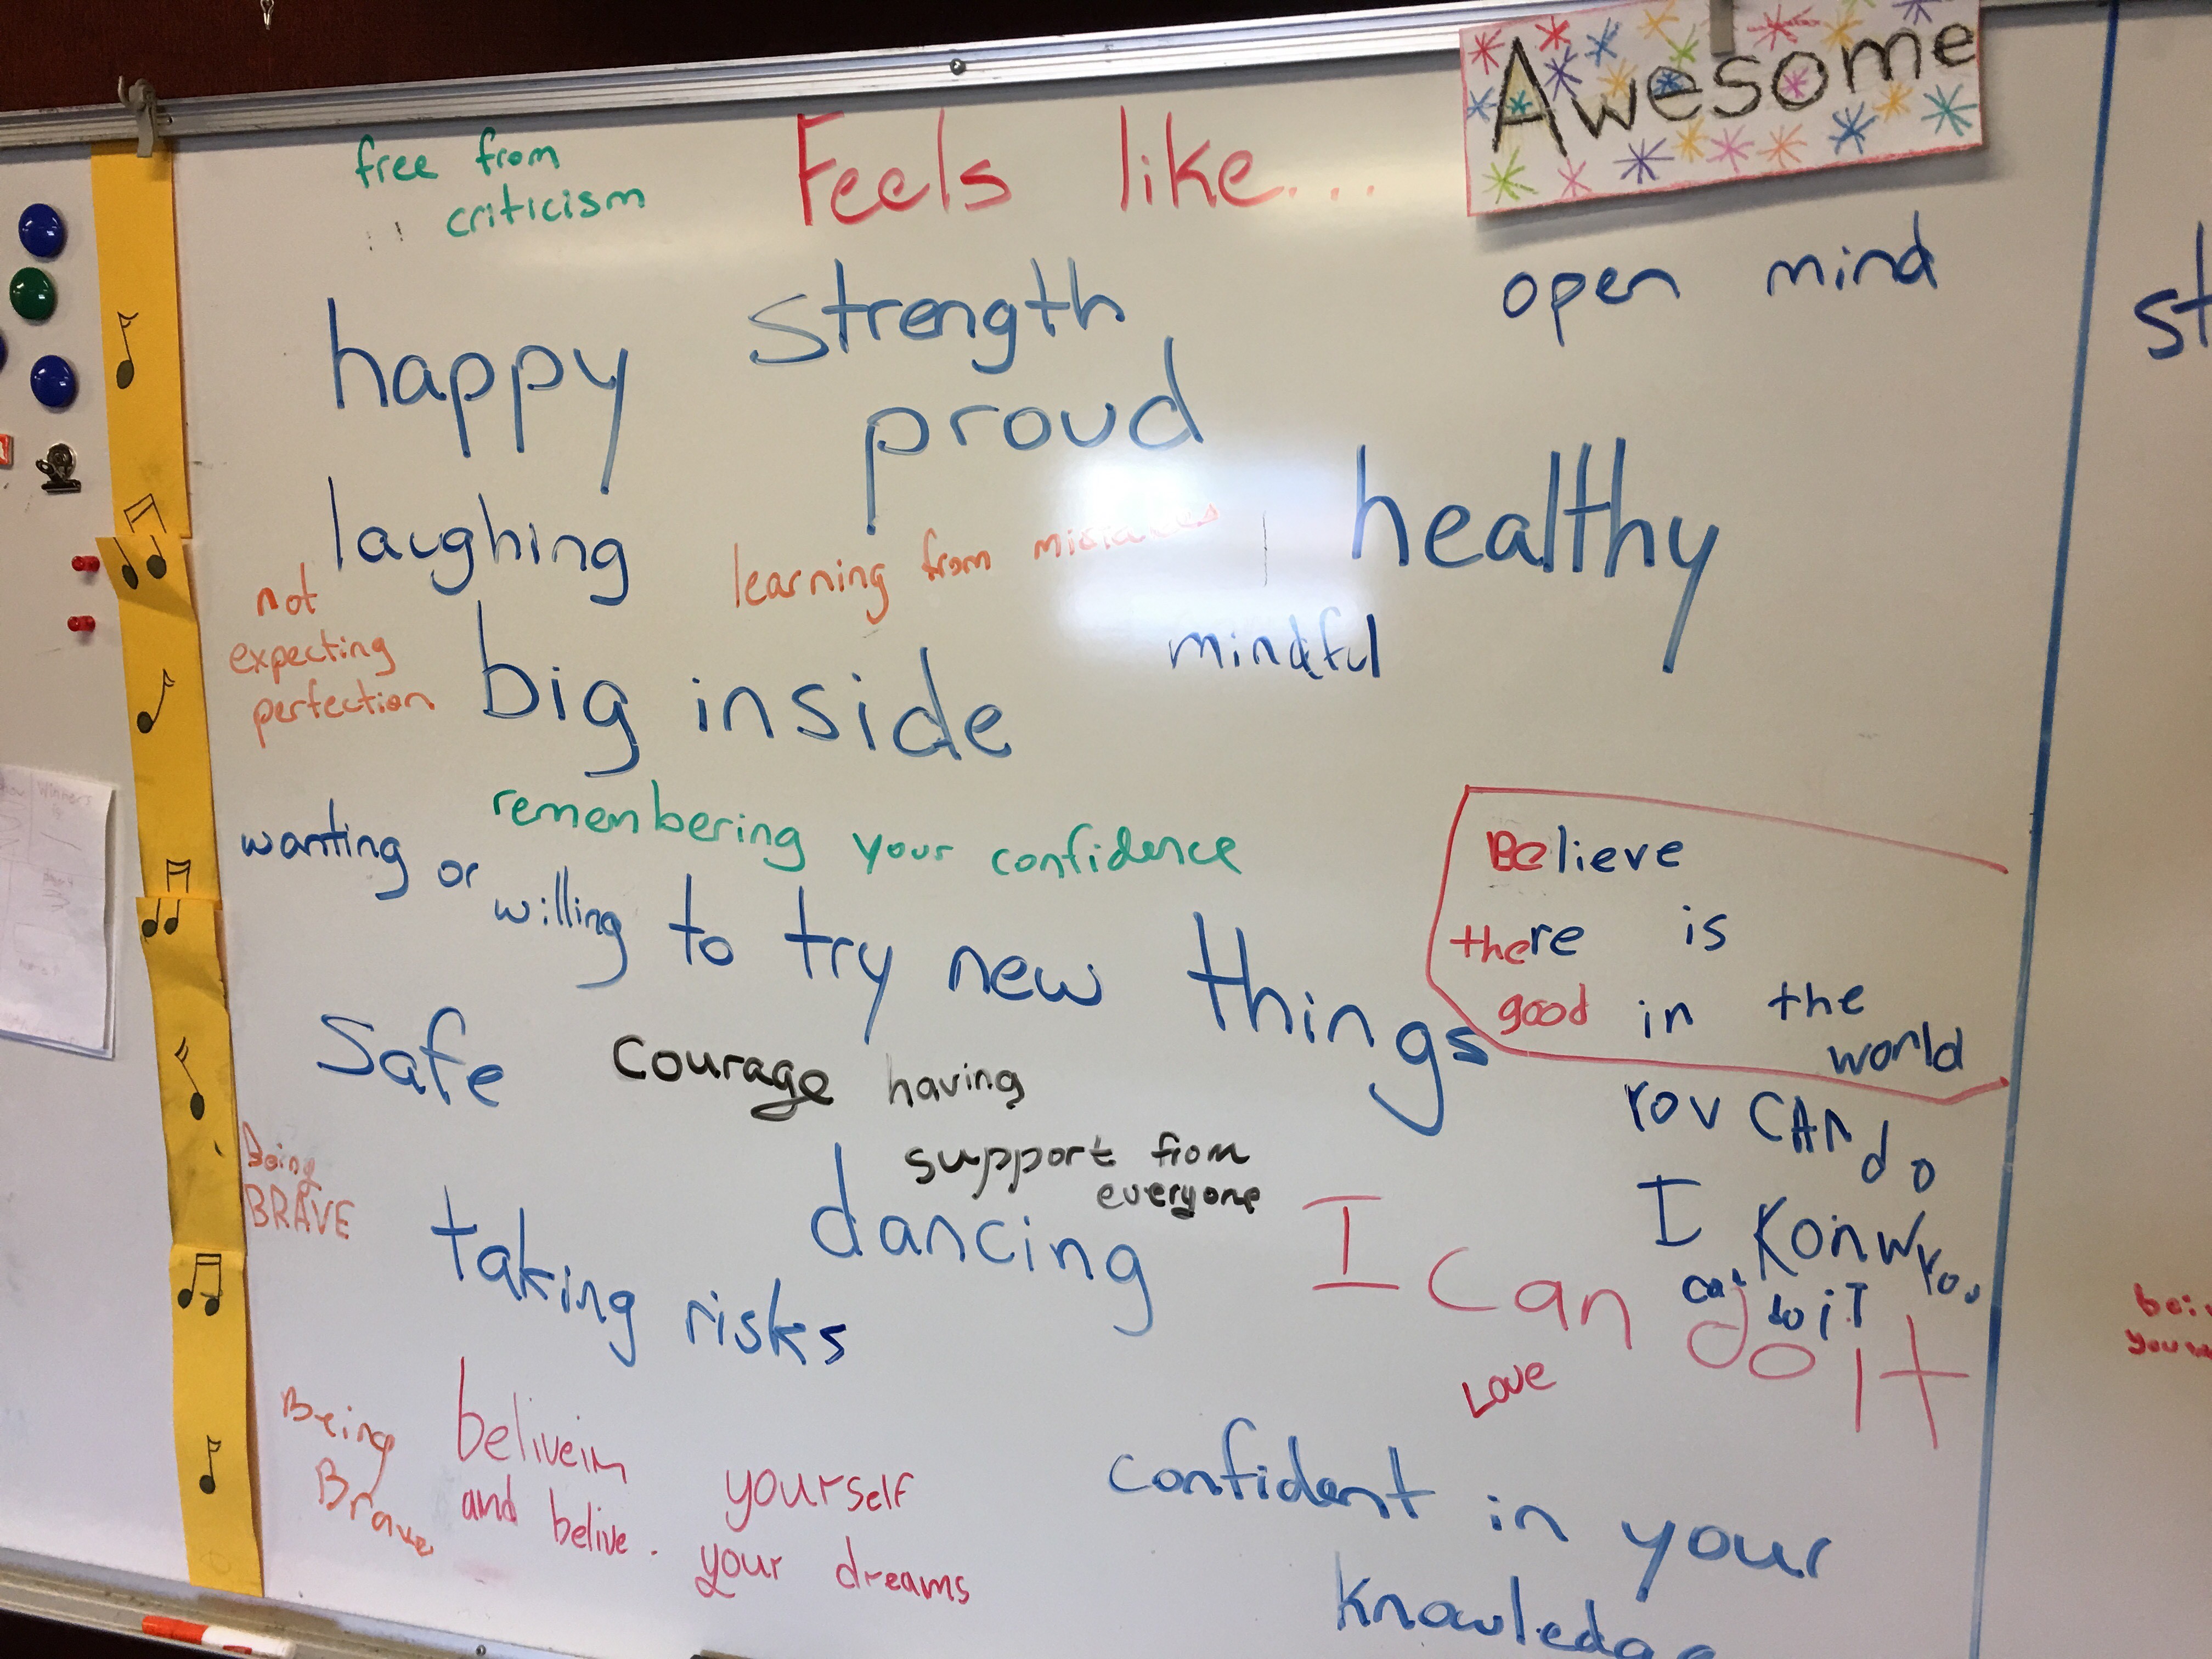 Awesome
Feels like...
free from
criticism
open mind
st
strength
happy
proud
laughing
healthy
learning from mistakes
not
expecting
perfection
mindful
big inside
remembering your confidence
wanting or willing to try new things
Believe
there is
good in the
world
safe
courage
having
support from
everyone
YOU CAN do
I KOinW YOU
can do iT
Being
BRAVE
taking risks
dancing
I can go it
Love
Being
Brave
belivein yourself
and belive. your dreams
confident in your
knowledge
Winners